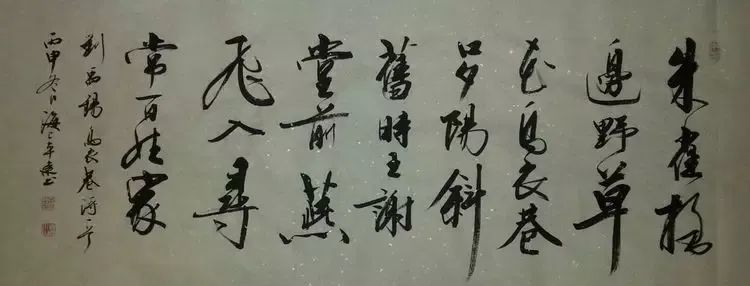 朱雀橋
邊野草
花烏衣巷
口夕陽斜
舊時王謝
堂前燕
飛入尋
常百姓家
劉禹錫烏衣巷詩一首
丙申冬日海上